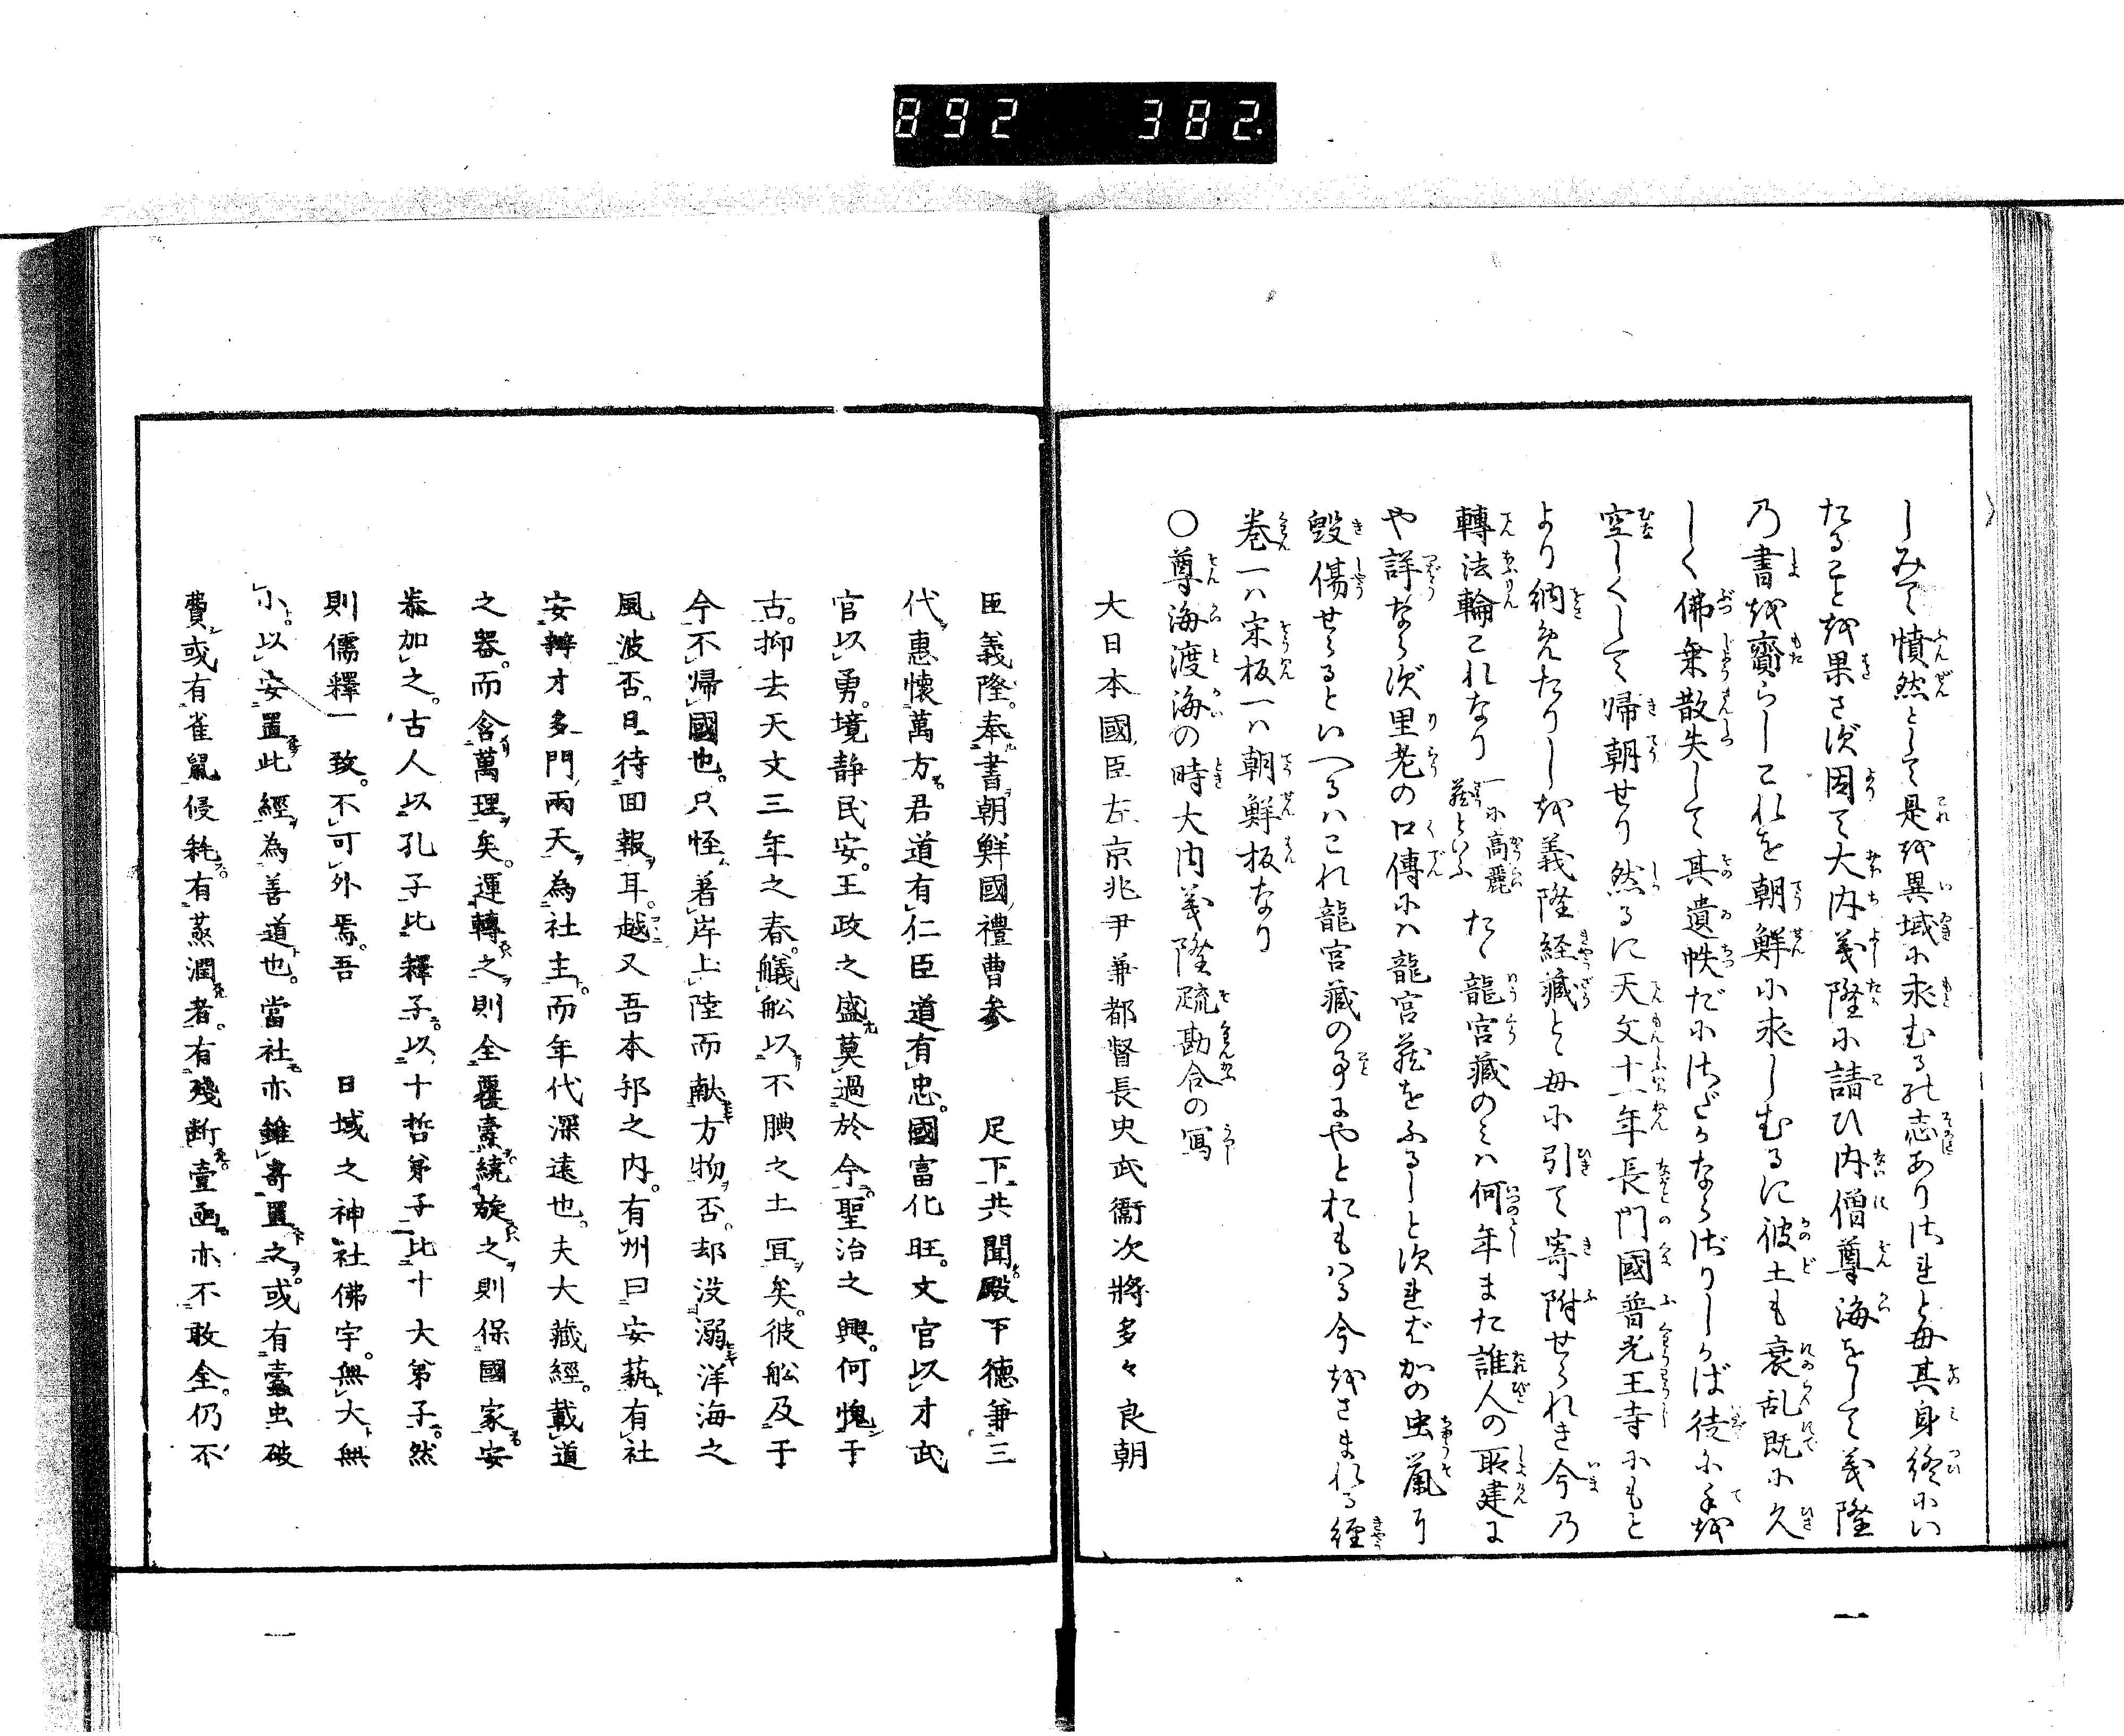 892 382.
しみて憤然として是を異域に求むるの志ありけれども其身終にい
たること越果さず因て大内義隆に請ひ内僧尊海をして義隆
乃書越齎らしこれを朝鮮に求しむるに彼土も衰乱既に久
しく佛乗散失して其遺帙だにけだかならざりしかば徒に手越
空しくして帰朝せり然るに天文十一年長門國普光王寺にもと
より納めたりし越義隆経藏とともに引て寄附せられき今乃
轉法輪これなり 一に高麗藏といふ たゞ龍宮藏のミハ何年また誰人の所建に
や詳ならず里老の口傳にハ龍宮藏をふるしと次まどかの虫鼠に
毀傷せらるといへるハこれ龍宮藏の事にやとおもハる今越さまれる経
巻一ハ宋板一ハ朝鮮板なり
〇尊海渡海の時大内義隆疏勘合の写
大日本國臣左京兆尹兼都督長史武衞次將多々良朝
臣義隆。奉書朝鮮國禮曹參 足下共聞殿下德兼三
代惠懷萬方。君道有仁臣道有忠。國富化旺。文官以才武
官以勇。境静民安。王政之盛莫過於今。聖治之興。何愧于
古。抑去天文三年之春。艤舩以不腆之土冝矣。彼舩及于
今不歸國也。只怪着岸上陸而献方物否。却沒溺洋海之
風波否。日待回報耳。越又吾本邦之内。有州曰安藝有社
安辨才多門兩天為社主。而年代深遠也。夫大藏經。載道
之器。而含萬理矣。運轉之則全覆燾繞旋之則保國家安
恭加之。古人以孔子比釋子。以十哲弟子比十大弟子。然
則儒釋一致。不可外焉。吾 日域之神社佛宇。無大無
小。以安置此經為善道也。當社亦雖寄置之。或有蠹虫破
費或有雀鼠侵耗。有蒸潤者。有殘断壹凾亦不敢全。仍不